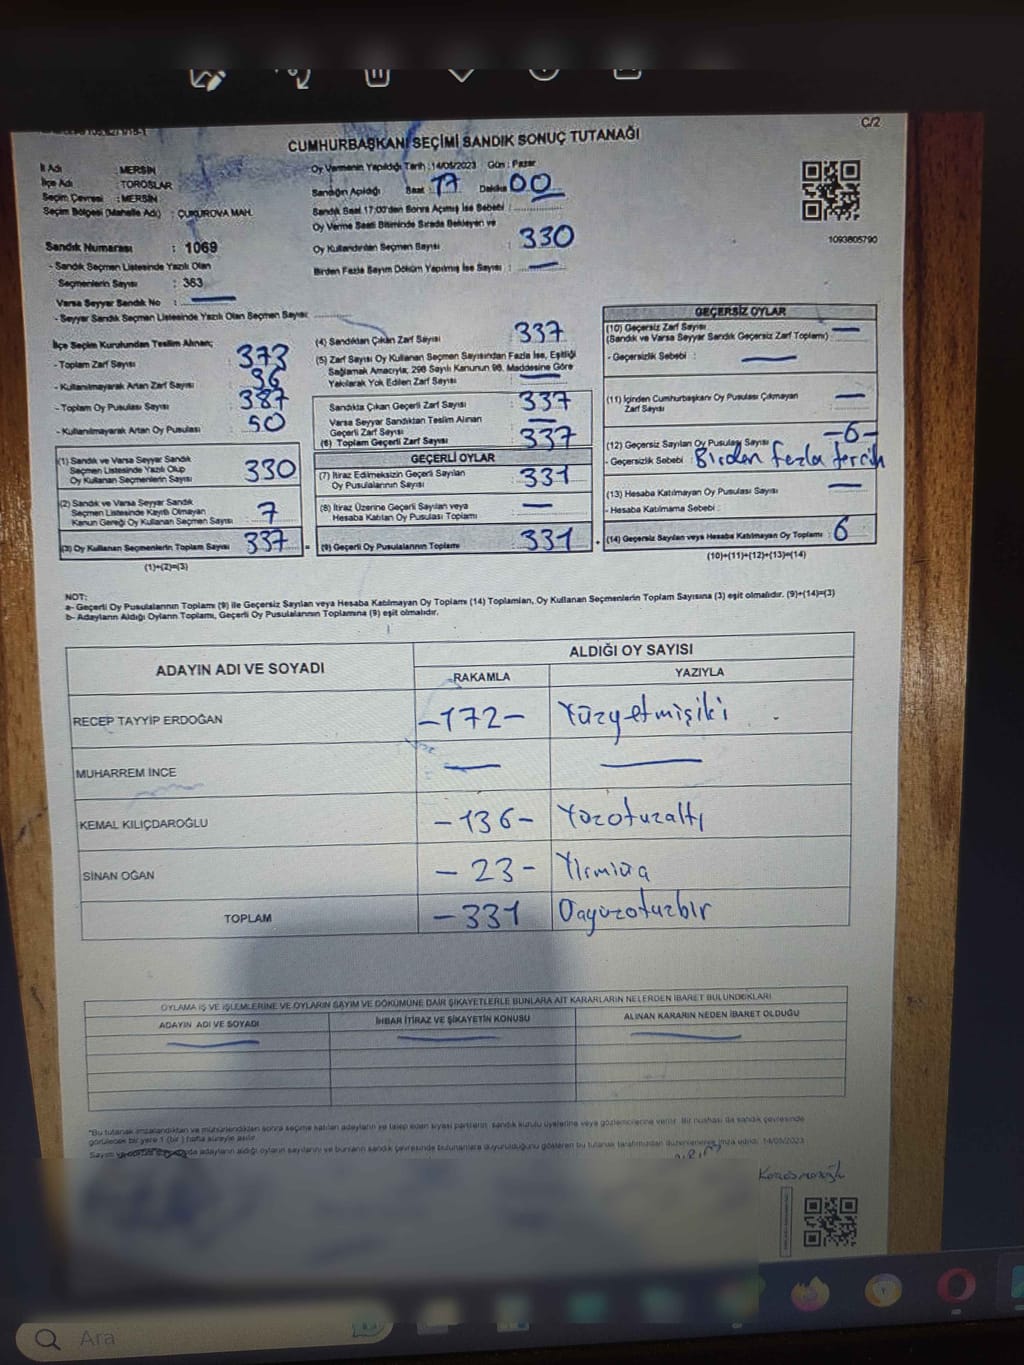 C/2
CUMHURBAŞKANI SEÇİMİ SANDIK SONUÇ TUTANAĞI
İl Adı : MERSİN
İlçe Adı : TOROSLAR
Seçim Çevresi : MERSİN
Seçim Bölgesi (Mahalle Adı) : ÇUKUROVA MAH.
Oy Vermenin Yapıldığı Tarih : 14/05/2023 Gün : Pazar
Sandığın Açıldığı Saat : 17 Dakika 00
Sandık Saat 17:00'den Sonra Açılmış İse Sebebi :
Oy Verme Saati Bitiminde Sırada Bekleyen ve
Oy Kullandırılan Seçmen Sayısı : 330
Birden Fazla Sayım Döküm Yapılmış İse Sayısı : —
1093805790
Sandık Numarası : 1069
- Sandık Seçmen Listesinde Yazılı Olan
Seçmenlerin Sayısı : 363
Varsa Seyyar Sandık No : —
- Seyyar Sandık Seçmen Listesinde Yazılı Olan Seçmen Sayısı:
İlçe Seçim Kurulundan Teslim Alınan;
- Toplam Zarf Sayısı : 373
- Kullanılmayarak Artan Zarf Sayısı : 36
- Toplam Oy Pusulası Sayısı : 387
- Kullanılmayarak Artan Oy Pusulası : 50
(1) Sandık ve Varsa Seyyar Sandık
Seçmen Listesinde Yazılı Olup
Oy Kullanan Seçmenlerin Sayısı : 330
(2) Sandık ve Varsa Seyyar Sandık
Seçmen Listesinde Kayıtlı Olmayan
Kanun Gereği Oy Kullanan Seçmen Sayısı : 7
(3) Oy Kullanan Seçmenlerin Toplam Sayısı : 337
(1)+(2)=(3)
(4) Sandıktan Çıkan Zarf Sayısı : 337
(5) Zarf Sayısı Oy Kullanan Seçmen Sayısından Fazla İse, Eşitliği
Sağlamak Amacıyla; 298 Sayılı Kanunun 98. Maddesine Göre
Yakılarak Yok Edilen Zarf Sayısı : —
Sandıkta Çıkan Geçerli Zarf Sayısı : 337
Varsa Seyyar Sandıktan Teslim Alınan
Geçerli Zarf Sayısı : —
(6) Toplam Geçerli Zarf Sayısı : 337
GEÇERLİ OYLAR
(7) İtiraz Edilmeksizin Geçerli Sayılan
Oy Pusulalarının Sayısı : 331
(8) İtiraz Üzerine Geçerli Sayılan veya
Hesaba Katılan Oy Pusulası Toplamı : —
(9) Geçerli Oy Pusulalarının Toplamı : 331
GEÇERSİZ OYLAR
(10) Geçersiz Zarf Sayısı : —
(Sandık ve Varsa Seyyar Sandık Geçersiz Zarf Toplamı)
- Geçersizlik Sebebi : —
(11) İçinden Cumhurbaşkanı Oy Pusulası Çıkmayan
Zarf Sayısı : —
(12) Geçersiz Sayılan Oy Pusulası Sayısı : -6-
- Geçersizlik Sebebi : Birden fazla tercih
(13) Hesaba Katılmayan Oy Pusulası Sayısı : —
- Hesaba Katılmama Sebebi :
(14) Geçersiz Sayılan veya Hesaba Katılmayan Oy Toplamı : 6
(10)+(11)+(12)+(13)=(14)
NOT:
a- Geçerli Oy Pusulalarının Toplamı (9) ile Geçersiz Sayılan veya Hesaba Katılmayan Oy Toplamı (14) Toplamları, Oy Kullanan Seçmenlerin Toplam Sayısına (3) eşit olmalıdır. (9)+(14)=(3)
b- Adayların Aldığı Oyların Toplamı, Geçerli Oy Pusulalarının Toplamına (9) eşit olmalıdır.
ADAYIN ADI VE SOYADI
ALDIĞI OY SAYISI
RAKAMLA YAZIYLA
RECEP TAYYİP ERDOĞAN -172- Yüzyetmişiki
MUHARREM İNCE — —
KEMAL KILIÇDAROĞLU -136- Yüzotuzaltı
SİNAN OĞAN -23- Yirmiüç
TOPLAM -331 Üçyüzotuzbir
OYLAMA İŞ VE İŞLEMLERİNE VE OYLARIN SAYIM VE DÖKÜMÜNE DAİR ŞİKAYETLERLE BUNLARA AİT KARARLARIN NELERDEN İBARET BULUNDUKLARI
ADAYIN ADI VE SOYADI İHBAR İTİRAZ VE ŞİKAYETİN KONUSU ALINAN KARARIN NEDEN İBARET OLDUĞU
"Bu tutanak imzalandıktan ve mühürlendikten sonra seçime katılan adayların ve talep eden siyasi partilerin sandık kurulu üyelerine veya gözlemcilerine verilir. Bir nüshası da sandık çevresinde
görülecek bir yere 1 (bir) hafta süreyle asılır.
Ara